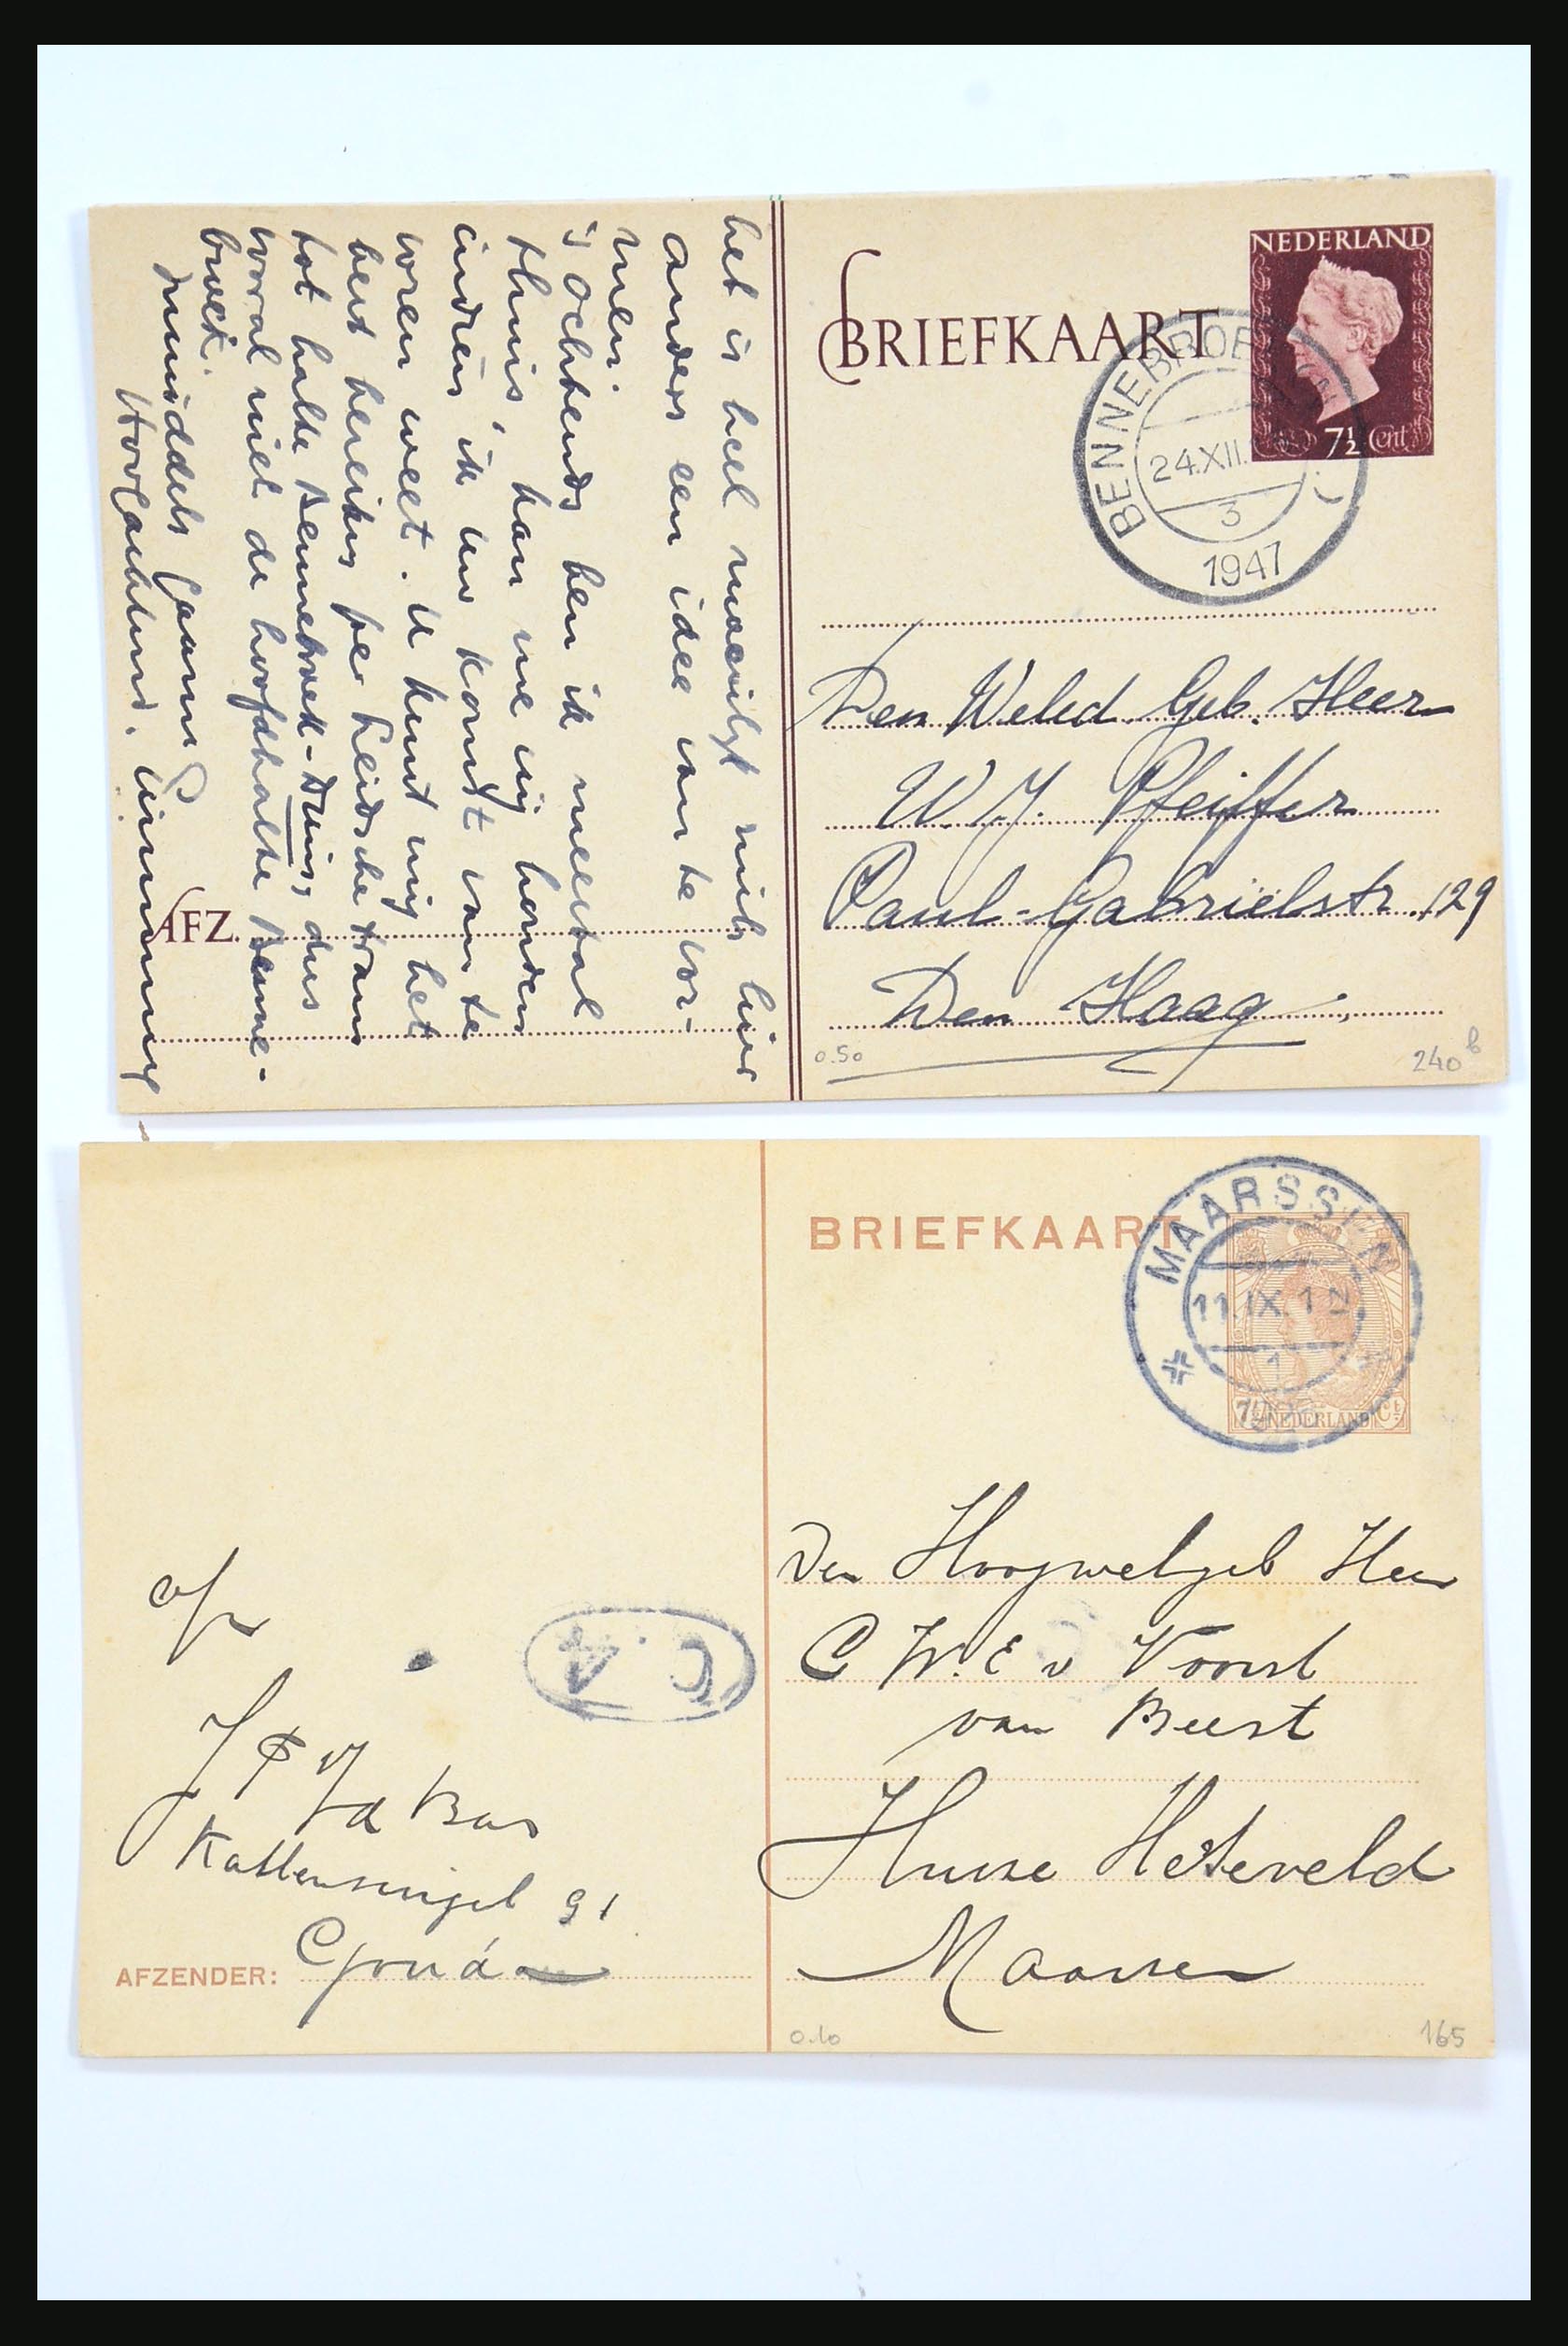 NEDERLAND
BRIEFKAART
7½ Cent
BENNEBROE
24.XII.
3
1947
Den Weled. Geb. Heer
W.J. Pfeiffer
Paul-Gabriëlstr. 129
Den Haag.
0.50
240 b
het is heel moeilijk mits hier
anders een idee van te vor-
men.
's Ochtends ben ik meestal
thuis, kan me nig houden
indien ik uw komst van te
voren weet. U kunt mij het
best bereiken per Leidsche tram
tot halte Bennebroek-Duin, dus
vooral niet de hoofdhalte Benne-
broek.
Inmiddels gaarne
Hoogachtend.
AFZ.
BRIEFKAART
MAARSSEN
11.IX.12
1
7½ NEDERLAND Ct
Den Hoogwelgeb Heer
C W. E v Voorst
van Beest
Huize Heteveld
Maarssen
C. A
afz
Kattensingel 91
Gouda
AFZENDER:
0.10
165